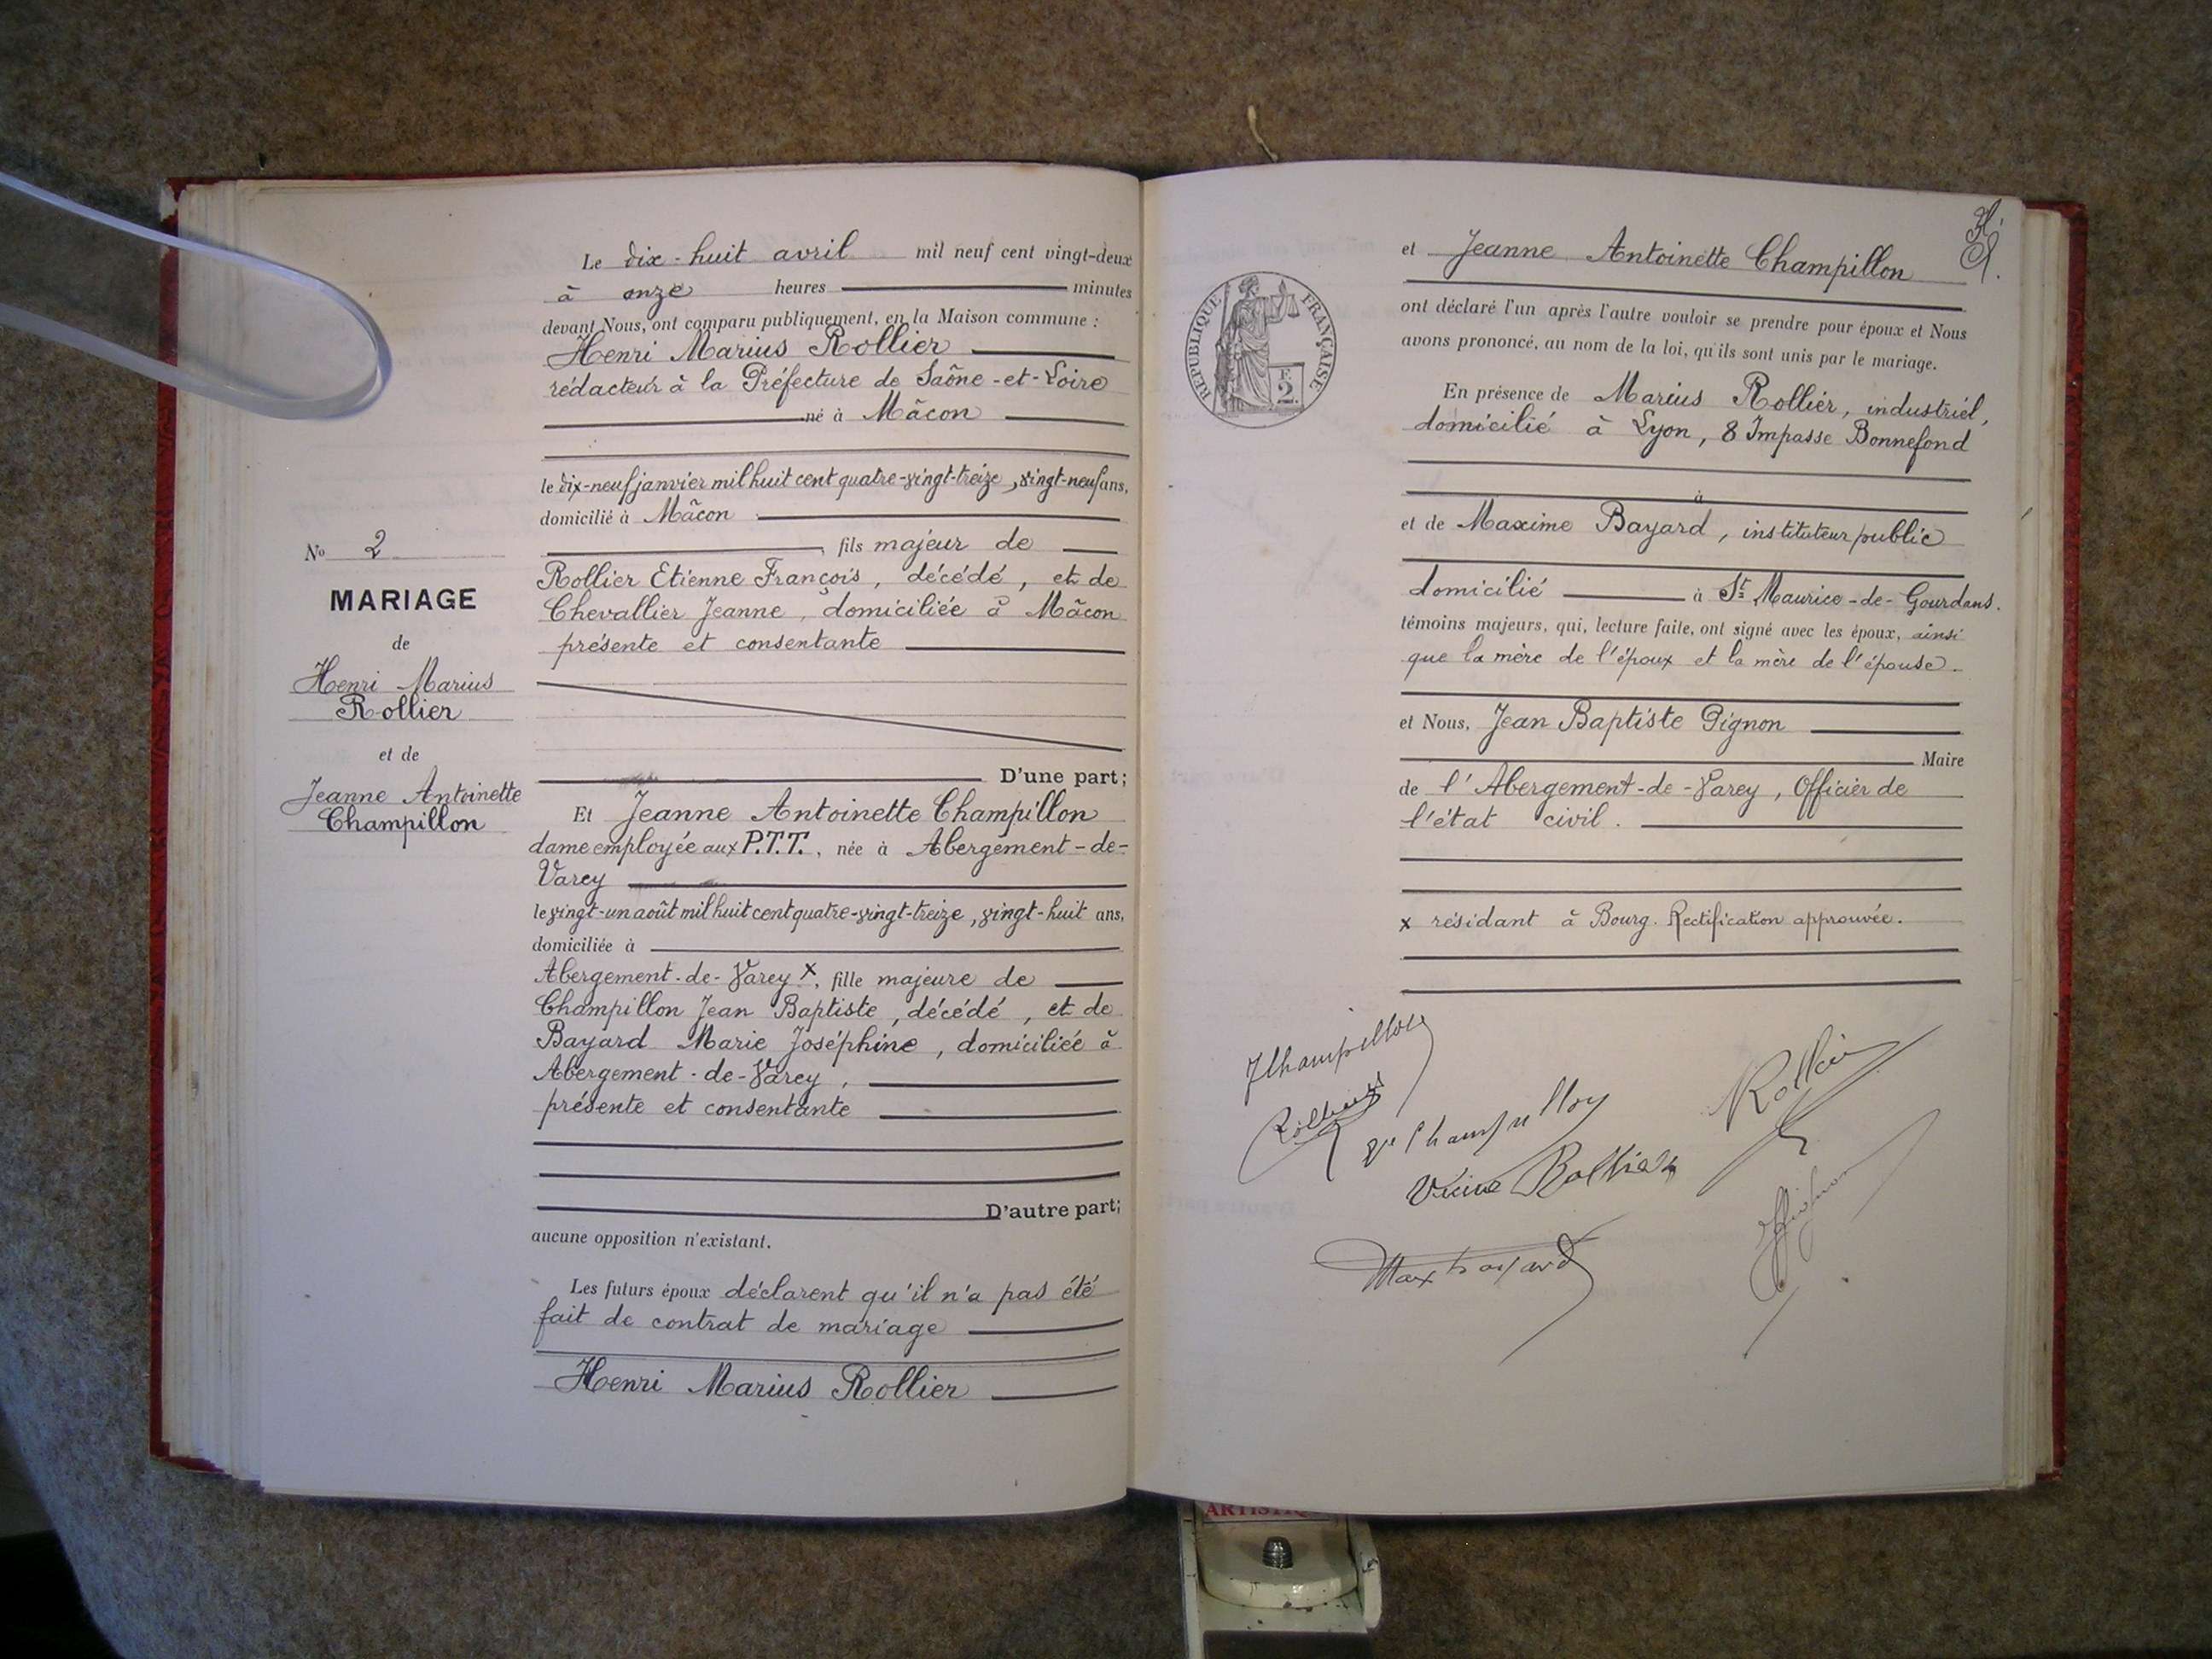 Le dix-huit avril mil neuf cent vingt-deux
à onze heures minutes
devant Nous, ont comparu publiquement, en la Maison commune :
Henri Marius Rollier
rédacteur à la Préfecture de Saône-et-Loire
né à Mâcon
le dix-neuf janvier mil huit cent quatre-vingt-treize, vingt-neuf ans,
domicilié à Mâcon
, fils majeur de
Rollier Etienne François, décédé, et de
Chevallier Jeanne, domiciliée à Mâcon
présente et consentante
D'une part;
No 2
MARIAGE
de
Henri Marius
Rollier
et de
Jeanne Antoinette
Champillon
Et Jeanne Antoinette Champillon
dame employée aux P.T.T., née à Abergement-de-
Varey
le vingt-un août mil huit cent quatre-vingt-treize, vingt-huit ans,
domiciliée à
Abergement-de-Varey x, fille majeure de
Champillon Jean Baptiste, décédé, et de
Bayard Marie Joséphine, domiciliée à
Abergement-de-Varey,
présente et consentante
D'autre part;
aucune opposition n'existant.
Les futurs époux déclarent qu'il n'a pas été
fait de contrat de mariage
Henri Marius Rollier
et Jeanne Antoinette Champillon
ont déclaré l'un après l'autre vouloir se prendre pour époux et Nous
avons prononcé, au nom de la loi, qu'ils sont unis par le mariage.
RÉPUBLIQUE FRANÇAISE
F.
2.
En présence de Marius Rollier, industriel,
domicilié à Lyon, 8 Impasse Bonnefond
à
et de Maxime Bayard, instituteur public
domicilié à St Maurice-de-Gourdans.
témoins majeurs, qui, lecture faite, ont signé avec les époux, ainsi
que la mère de l'époux et la mère de l'épouse.
et Nous, Jean Baptiste Pignon
Maire
de l'Abergement-de-Varey, Officier de
l'état civil.
x résidant à Bourg. Rectification approuvée.
JChampillon
Rollier
Rollier
Vve Champillon
Veuve Rollier
Max Bayard
JPignon
ARTISTIQU